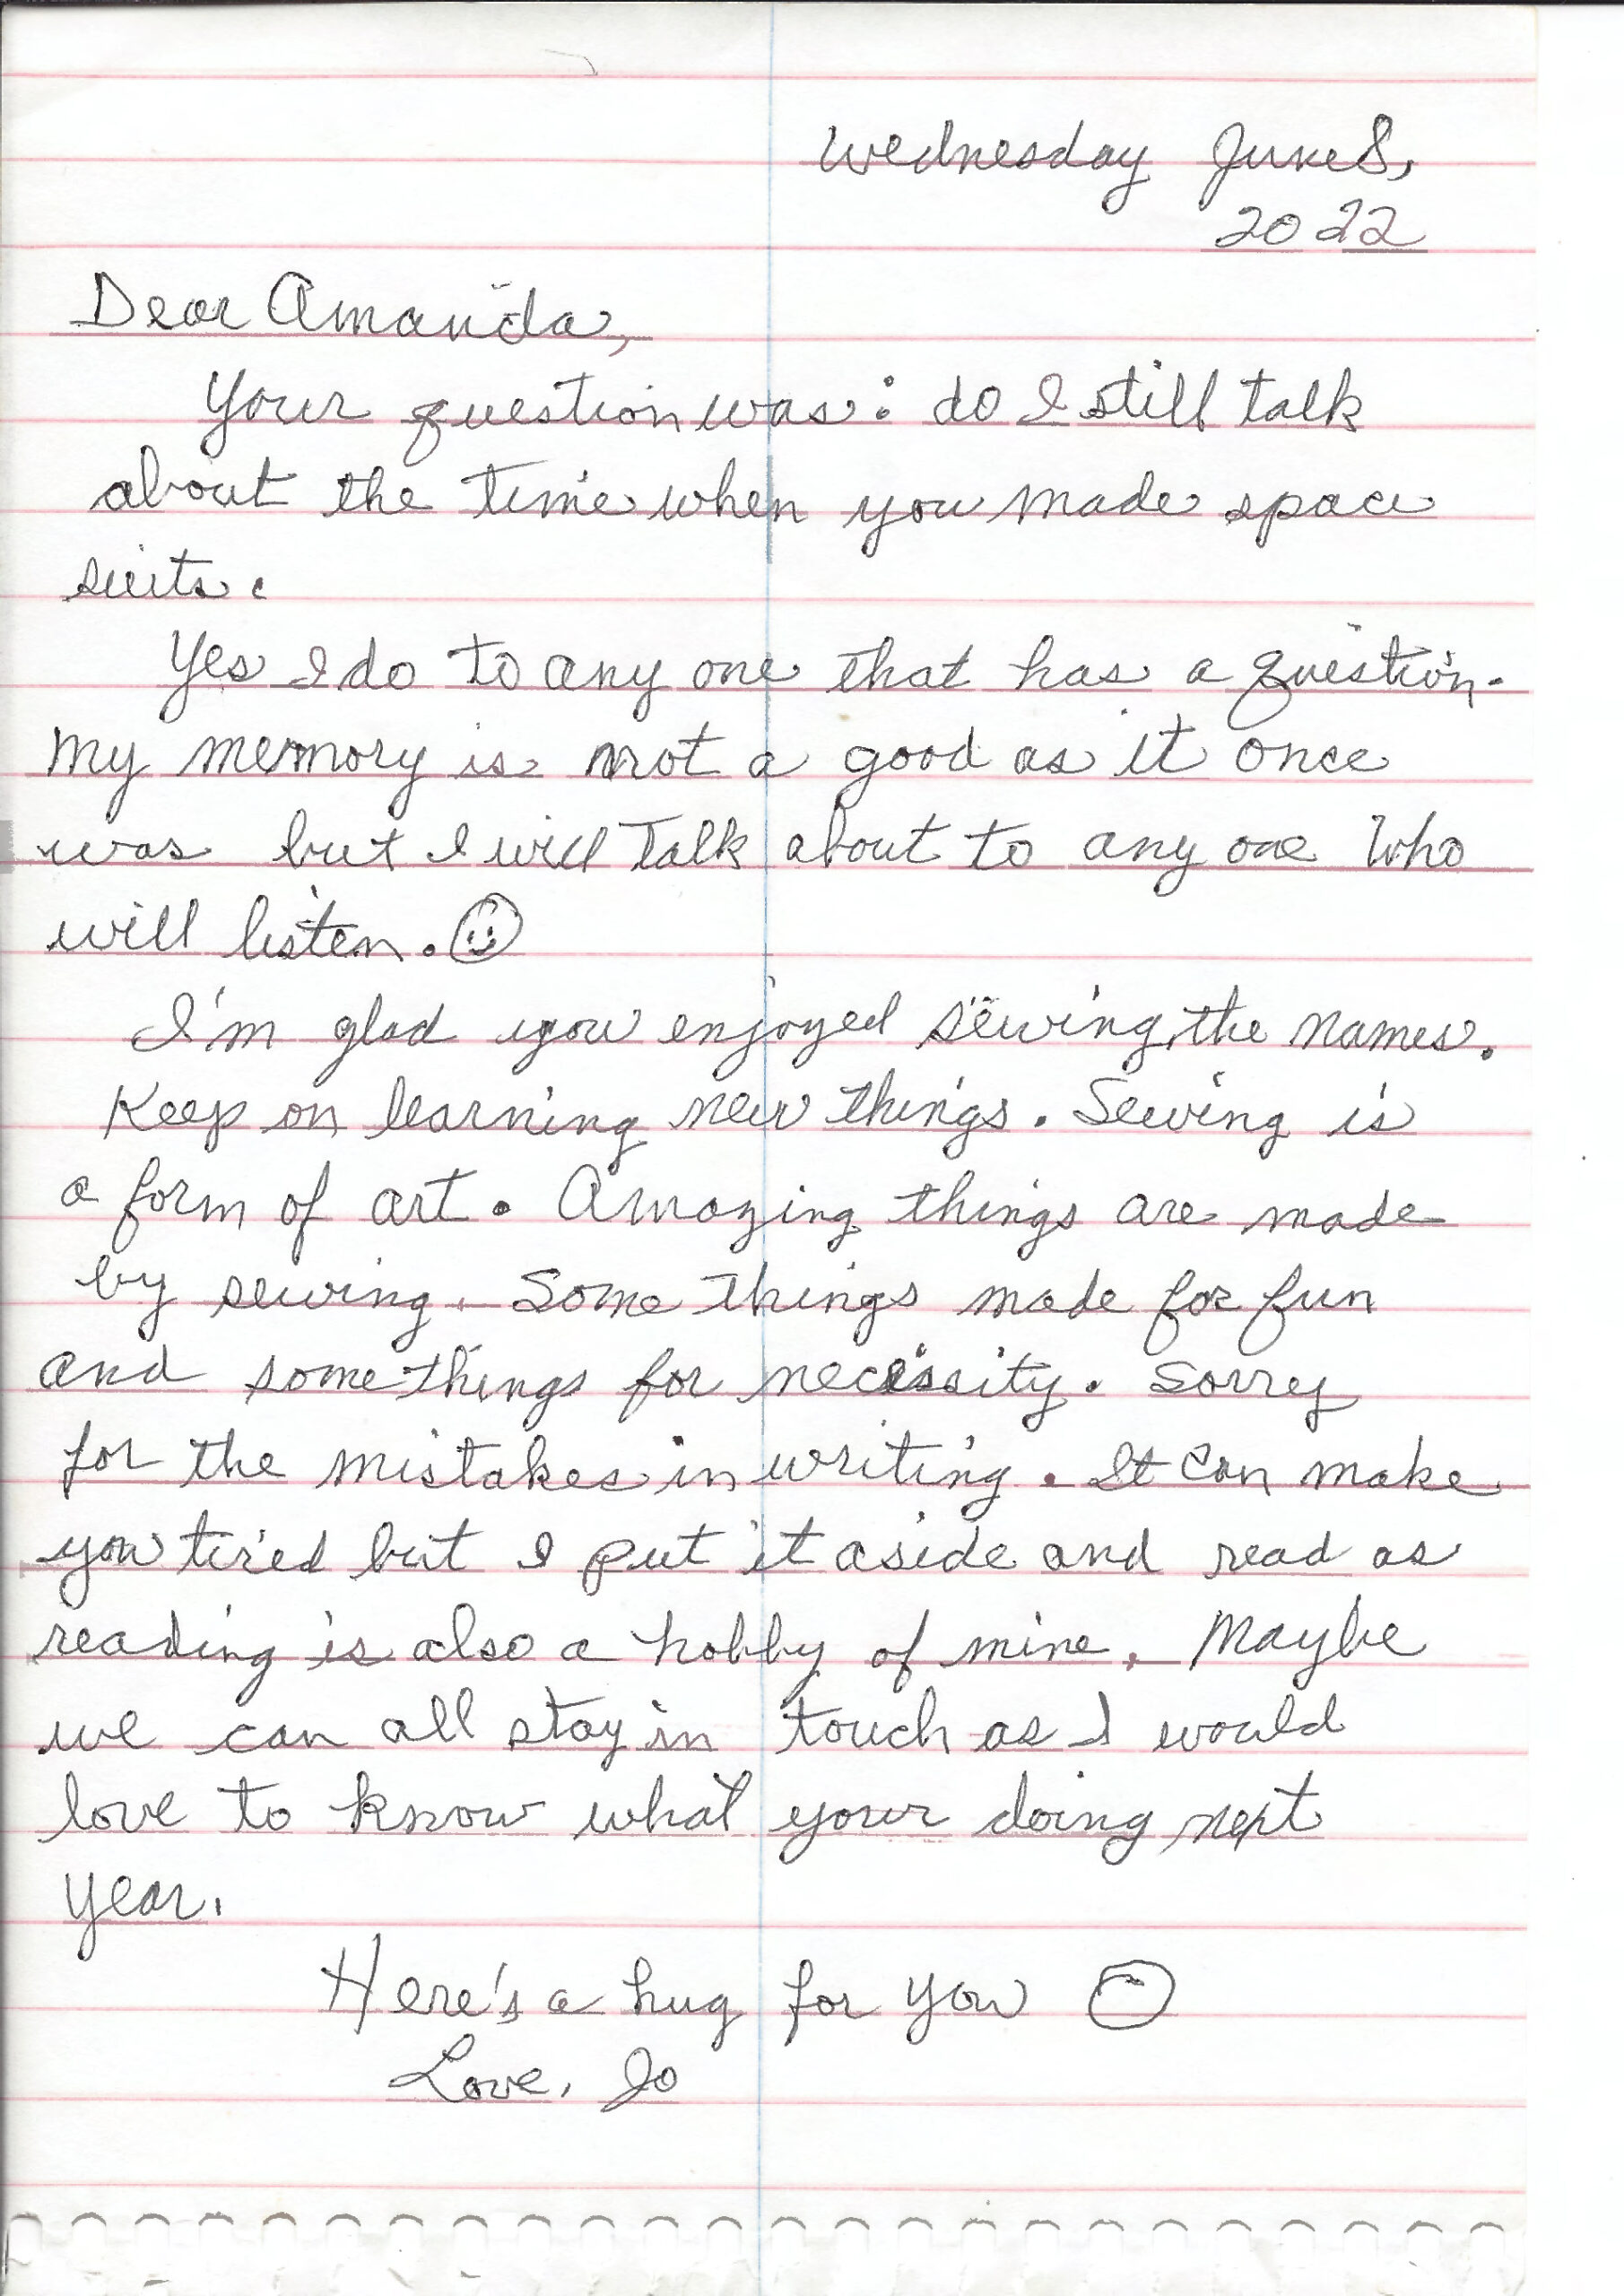 Wednesday June 8,
2022
Dear Amanda,
Your question was: do I still talk
about the time when you made space
suits.
Yes I do to any one that has a question.
My memory is not a good as it once
was but I will talk about to any one who
will listen. ☺
I'm glad you enjoyed sewing the names.
Keep on learning new things. Sewing is
a form of art. Amazing things are made
by sewing. Some things made for fun
and some things for necessity. Sorry
for the mistakes in writing. It can make
you tired but I put it aside and read as
reading is also a hobby of mine. Maybe
we can all stay in touch as I would
love to know what your doing next
year.
Here's a hug for you ☺
Love, Jo